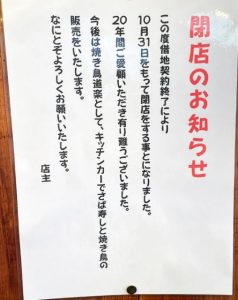 閉店のお知らせ
この度借地契約終了により
10月31日をもって閉店をする事となりました。
20年間ご愛顧いただき有り難うございました。
今後は焼き鳥道楽として、キッチンカーでさば寿しと焼き鳥の
販売をいたします。
なにとぞよろしくお願いいたします。
店主